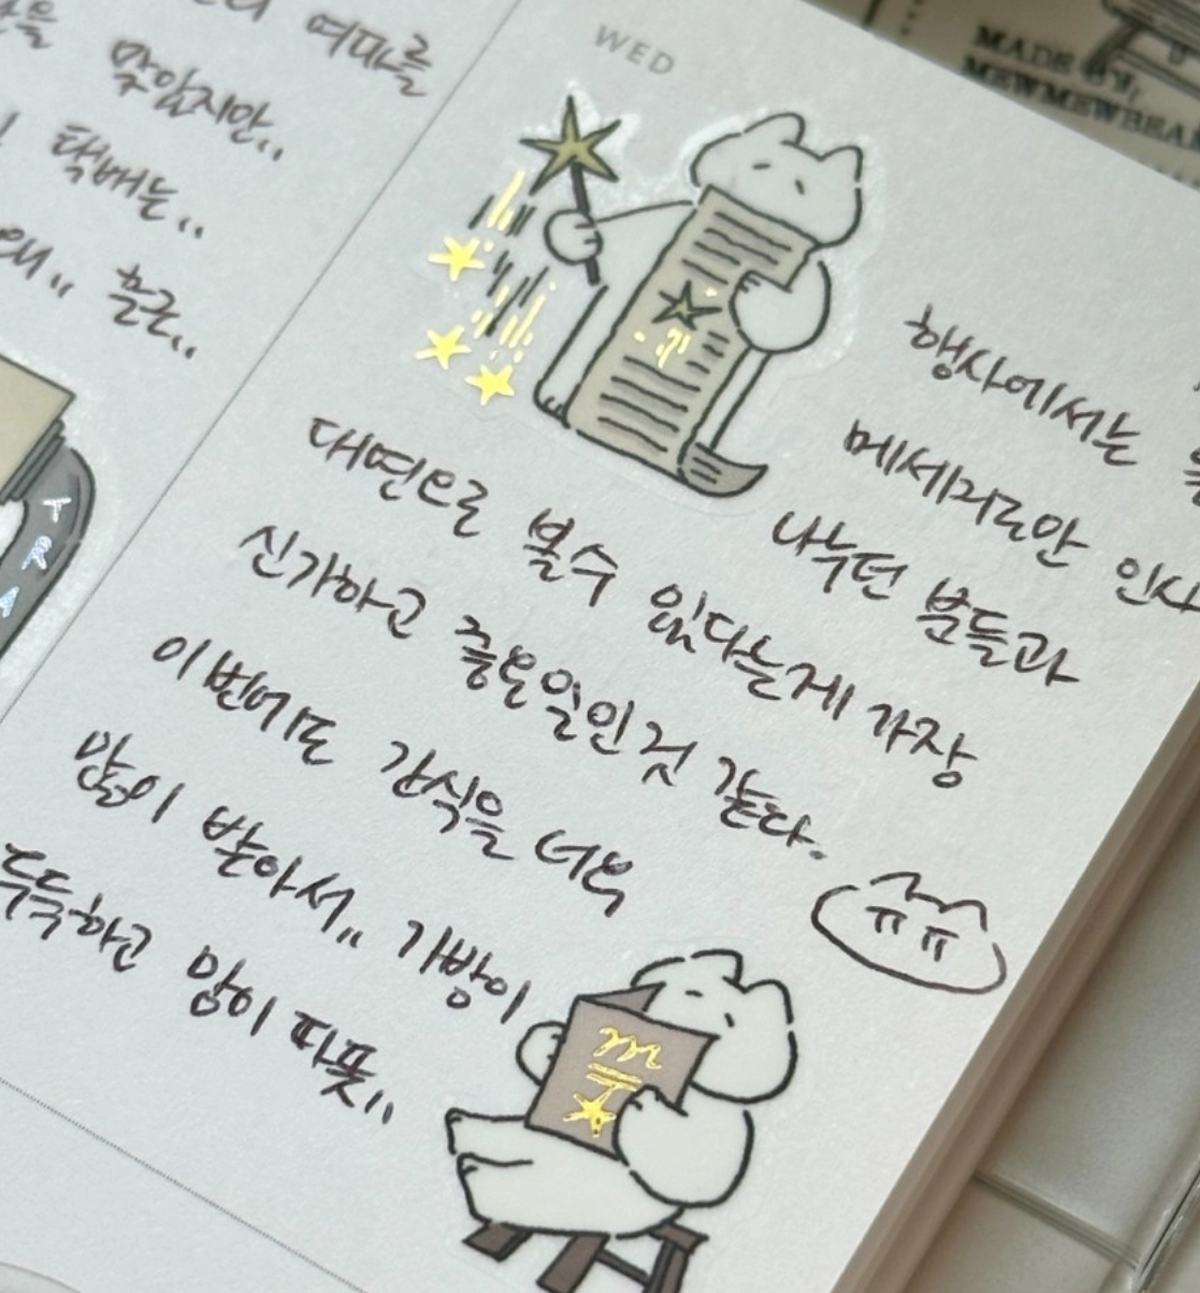 여파를
맞았지만..
택배는..
흘근..
WED
MADE BY,
MEWMEWBEAR
행사에서는
메세지로만 인사
나누던 분들과
대면으로 볼수 있다는게 가장
신기하고 중요일인것 같다.
이번에도 간식을 너무
많이 받아서.. 가방이
두둑하고 맘이 따뜻..
ㅠㅠ
TRA
m